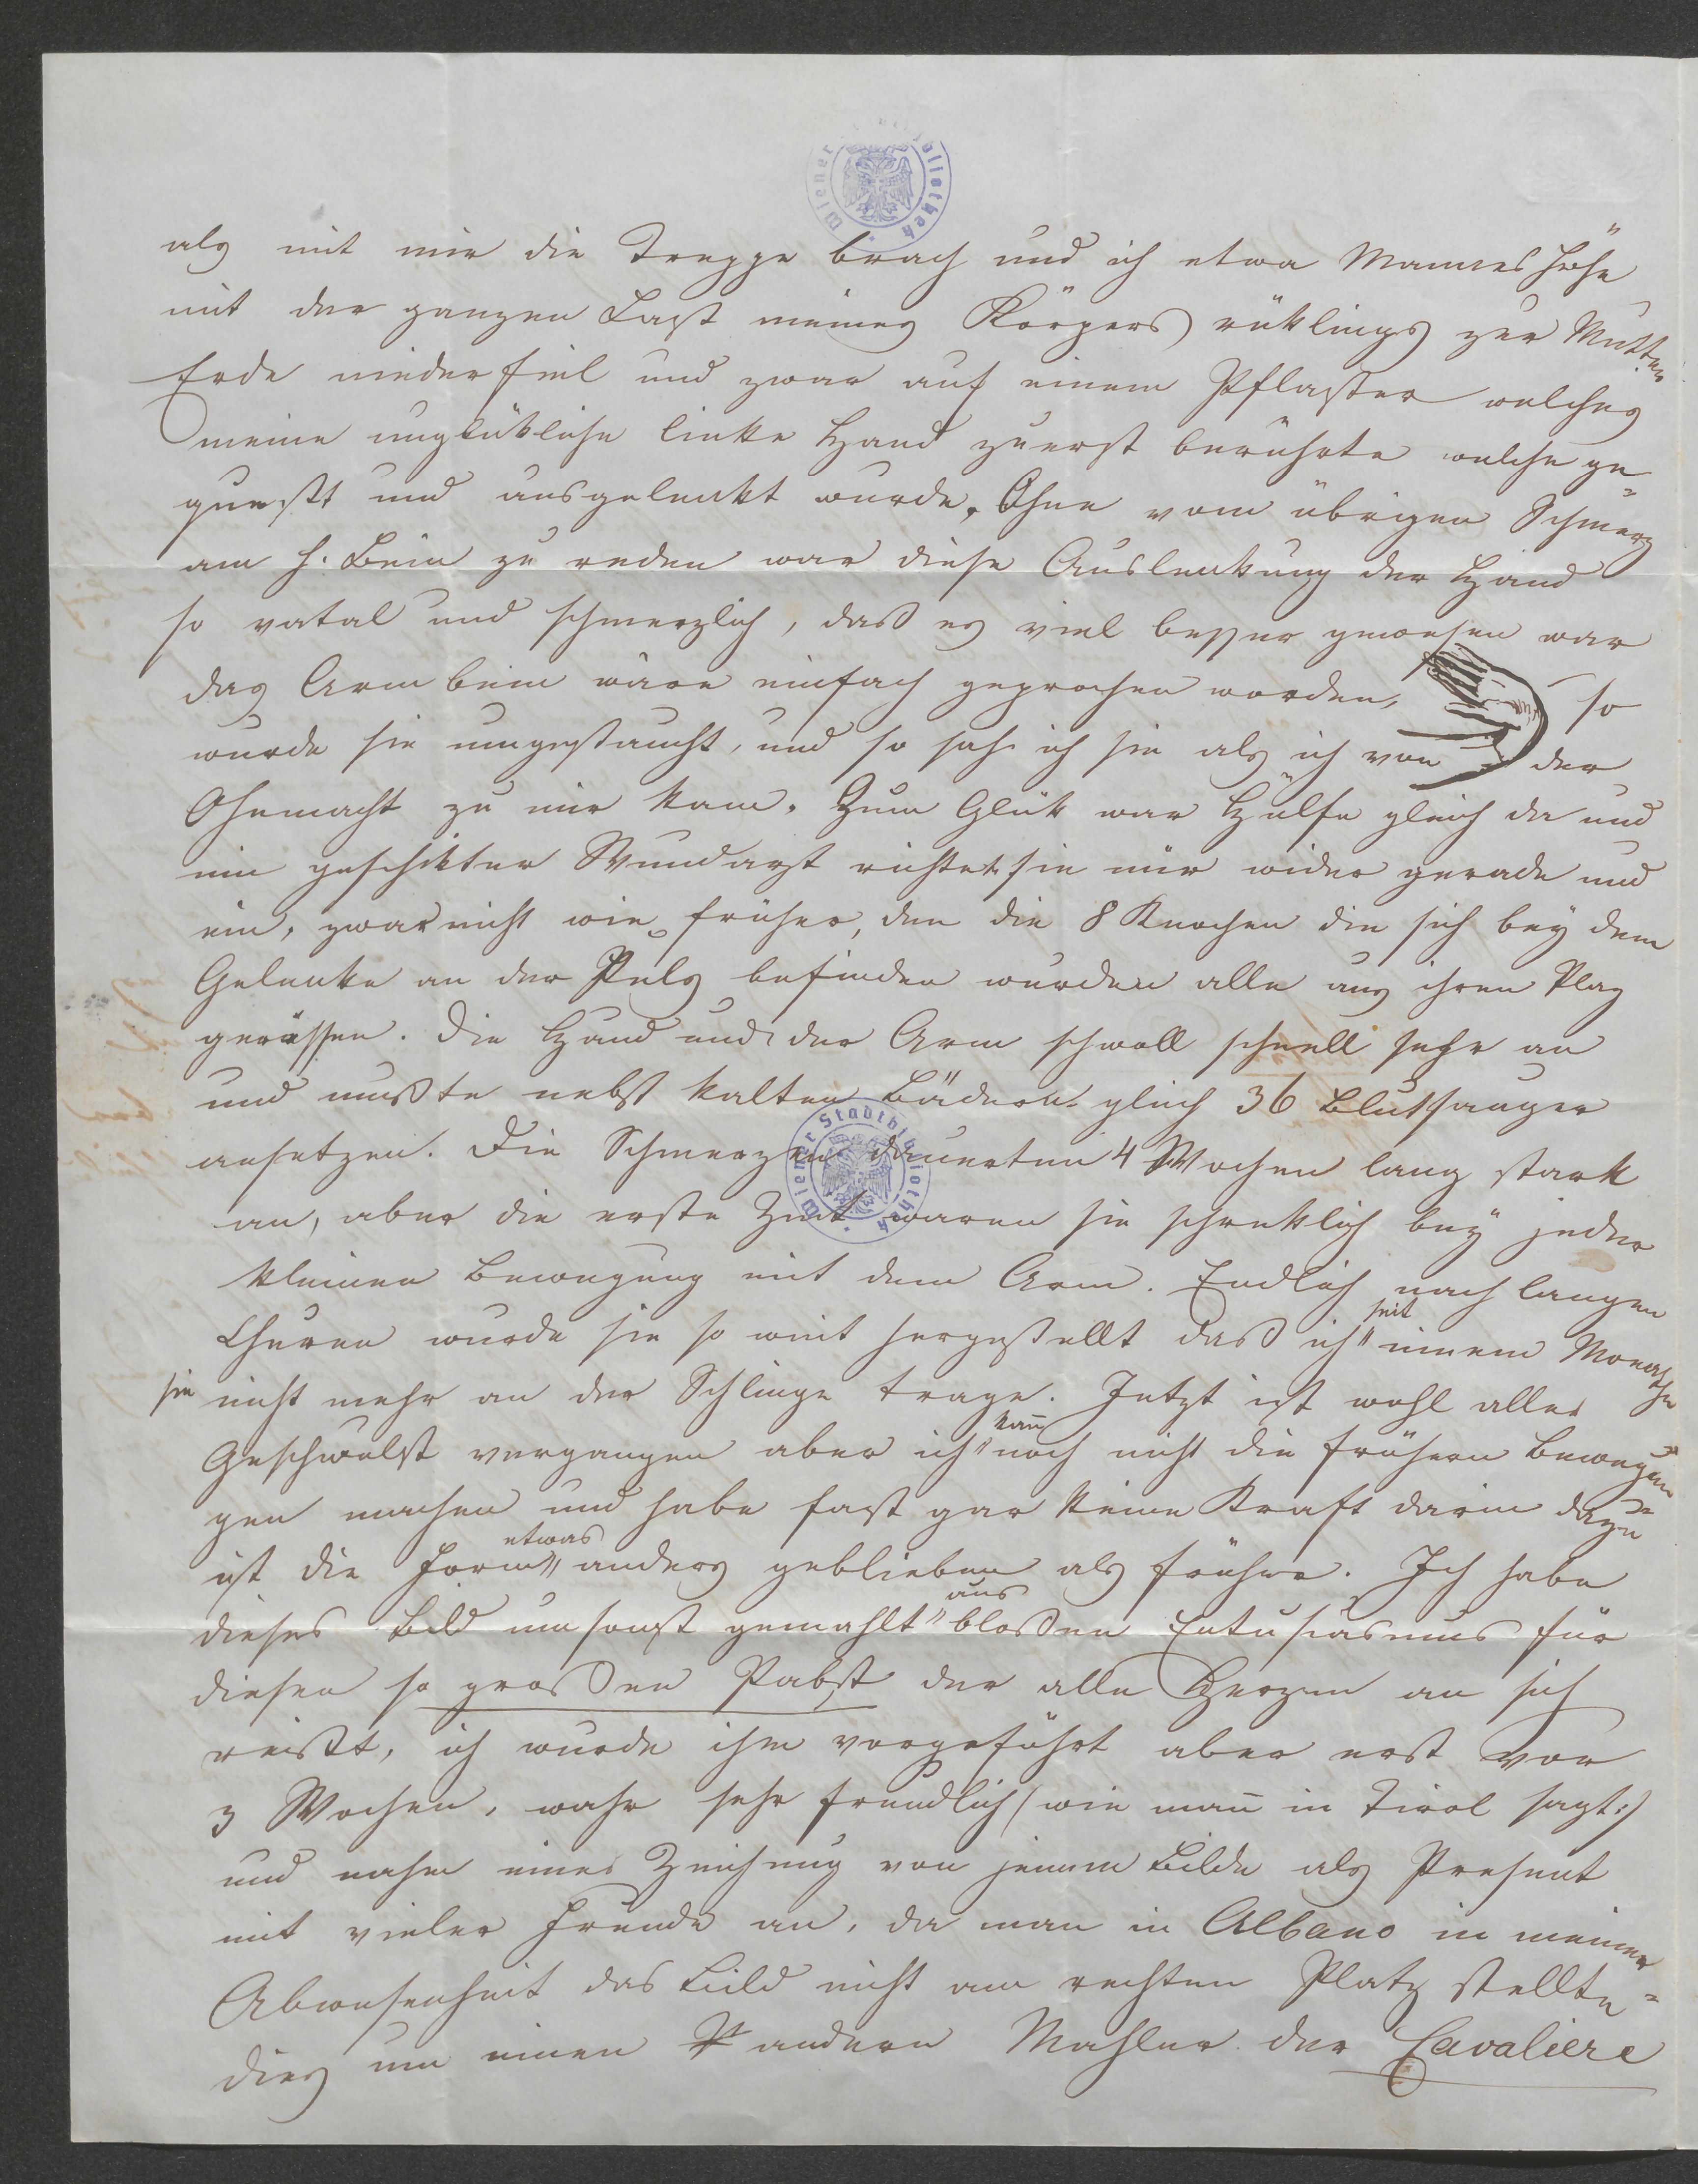 als mit mir die Treppe brach und ich etwa Manneshöhe
mit der ganzen Last meines Körpers rüklings zur Mutter
Erde niederfiel und zwar auf einem Pflaster welches
meine unglükliche linke Hand zuerst berührte welche ge=
quescht und ausgelenkt wurde. Ohne vom übrigen Schmerz
am h. Bein zu reden war diese Auslenkung der Hand
so vatal und schmerzlich, daß es viel besser gewesen war
das Armbein wäre einfach geprochen worden, so
wurde sie umgestaucht, und so sah ich sie als ich von der
Ohnmacht zu mir kam. Zum Glük war Hülfe gleich da und
ein geschikter Wundarzt richtet sie mir wider gerade und
ein, zwar nicht wie früher, den die 8 Knochen die sich bey dem
Gelenke an der Puls befinden wurden alle aus ihren Plaz
gerissen. Die Hand und der Arm schwoll schnell sehr an
und mußte nebst kalten Bädern gleich 36 Blutsauger
ansetzen. Die Schmerzen dauerten 4 Wochen lang stark
an, aber die erste Zeit waren sie schreklich bey jeder
kleinen Bewegung mit dem Arm. Endlich nach langen
Churen wurde sie so weit hergestellt daß ich seit einem Monathe
sie nicht mehr an der Schlinge trage. Jetzt ist wohl aller
Geschwulst vergangen aber ich kan̄ noch nicht die frühern Bewegun=
gen machen und habe fast gar keine Kraft darin dazu
ist die Form etwas anders geblieben als früher. Ich habe
dieses Bild umsonst gemahlt aus bloßen Entusiasmus für
diesen so großen Pabst der alle Herzen an sich
reißt, ich wurde ihm vorgeführt aber erst vor
3 Wochen, wahr sehr freundlich (wie man̄ in Tirol sagt:)
und nahm eine Zeichnung von jenem Bilde als Present
mit vieler Freude an, da man in Albano in meiner
Abwesenheit das Bild nicht am rechten Platz stellte=
dies um einen andern Mahler der Cavaliere
Wiener Stadtbibliothek